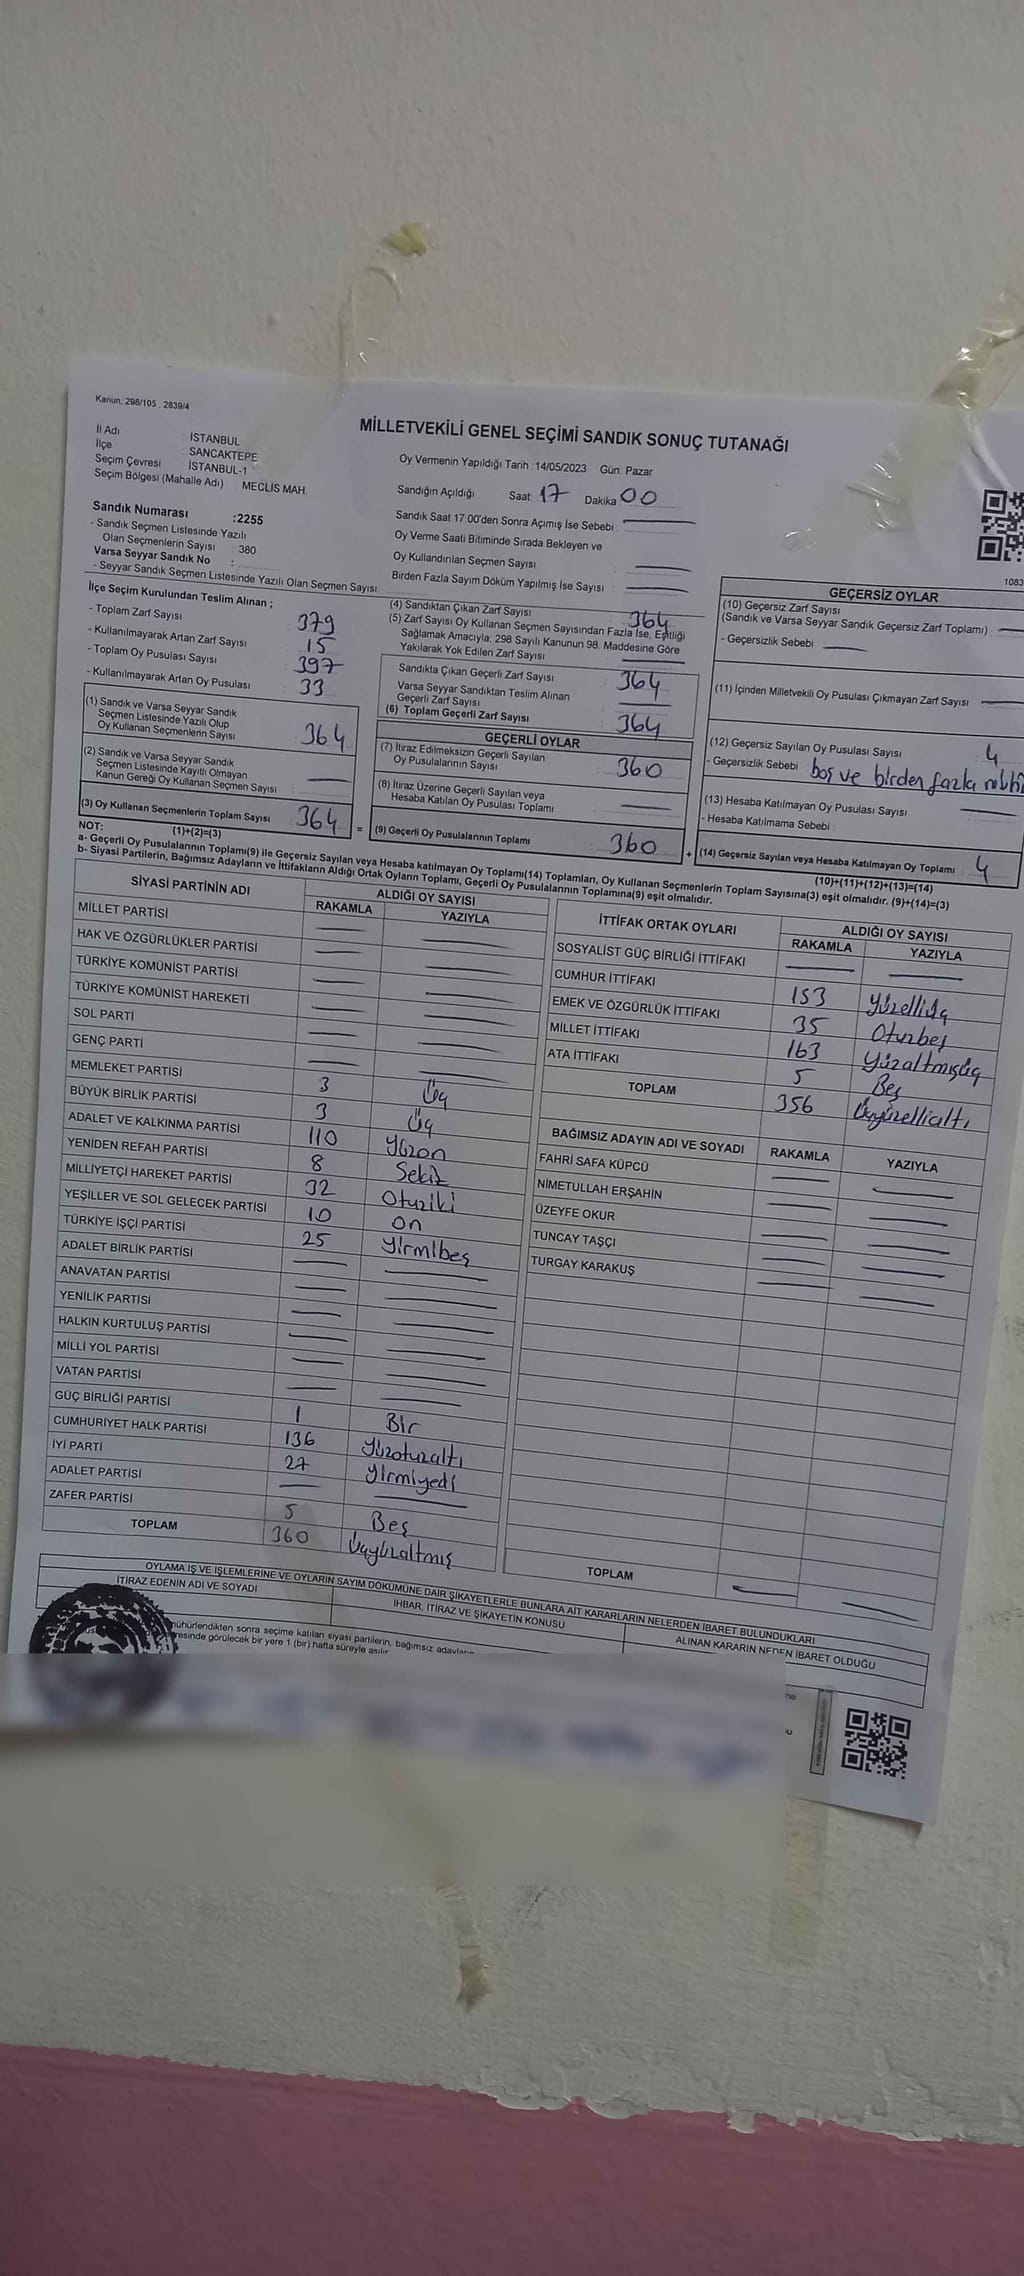 Kanun; 298/105 , 2839/4
MİLLETVEKİLİ GENEL SEÇİMİ SANDIK SONUÇ TUTANAĞI
İl Adı : İSTANBUL
İlçe : SANCAKTEPE
Seçim Çevresi : İSTANBUL-1
Seçim Bölgesi (Mahalle Adı) : MECLİS MAH.
Oy Vermenin Yapıldığı Tarih :14/05/2023 Gün: Pazar
Sandığın Açıldığı Saat: 17 Dakika 00
Sandık Saat 17:00'den Sonra Açılmış İse Sebebi :
Oy Verme Saati Bitiminde Sırada Bekleyen ve
Oy Kullandırılan Seçmen Sayısı :
Birden Fazla Sayım Döküm Yapılmış İse Sayısı :
Sandık Numarası :2255
- Sandık Seçmen Listesinde Yazılı
Olan Seçmenlerin Sayısı : 380
Varsa Seyyar Sandık No :
- Seyyar Sandık Seçmen Listesinde Yazılı Olan Seçmen Sayısı:
1083
İlçe Seçim Kurulundan Teslim Alınan ;
- Toplam Zarf Sayısı : 379
- Kullanılmayarak Artan Zarf Sayısı : 15
- Toplam Oy Pusulası Sayısı : 397
- Kullanılmayarak Artan Oy Pusulası : 33
(1) Sandık ve Varsa Seyyar Sandık
Seçmen Listesinde Yazılı Olup
Oy Kullanan Seçmenlerin Sayısı : 364
(2) Sandık ve Varsa Seyyar Sandık
Seçmen Listesinde Kayıtlı Olmayan
Kanun Gereği Oy Kullanan Seçmen Sayısı :
(3) Oy Kullanan Seçmenlerin Toplam Sayısı : 364
(1)+(2)=(3)
(4) Sandıktan Çıkan Zarf Sayısı : 364
(5) Zarf Sayısı Oy Kullanan Seçmen Sayısından Fazla İse, Eşitliği
Sağlamak Amacıyla, 298 Sayılı Kanunun 98. Maddesine Göre
Yakılarak Yok Edilen Zarf Sayısı :
Sandıkta Çıkan Geçerli Zarf Sayısı : 364
Varsa Seyyar Sandıktan Teslim Alınan
Geçerli Zarf Sayısı :
(6) Toplam Geçerli Zarf Sayısı : 364
GEÇERLİ OYLAR
(7) İtiraz Edilmeksizin Geçerli Sayılan
Oy Pusulalarının Sayısı : 360
(8) İtiraz Üzerine Geçerli Sayılan veya
Hesaba Katılan Oy Pusulası Toplamı :
= (9) Geçerli Oy Pusulalarının Toplamı : 360
GEÇERSİZ OYLAR
(10) Geçersiz Zarf Sayısı
(Sandık ve Varsa Seyyar Sandık Geçersiz Zarf Toplamı) :
- Geçersizlik Sebebi :
(11) İçinden Milletvekili Oy Pusulası Çıkmayan Zarf Sayısı :
(12) Geçersiz Sayılan Oy Pusulası Sayısı : 4
- Geçersizlik Sebebi : boş ve birden fazla
(13) Hesaba Katılmayan Oy Pusulası Sayısı :
- Hesaba Katılmama Sebebi :
+ (14) Geçersiz Sayılan veya Hesaba Katılmayan Oy Toplamı : 4
(10)+(11)+(12)+(13)=(14)
NOT:
a- Geçerli Oy Pusulalarının Toplamı(9) ile Geçersiz Sayılan veya Hesaba katılmayan Oy Toplamı(14) Toplamları, Oy Kullanan Seçmenlerin Toplam Sayısına(3) eşit olmalıdır. (9)+(14)=(3)
b- Siyasi Partilerin, Bağımsız Adayların ve İttifakların Aldığı Ortak Oyların Toplamı, Geçerli Oy Pusulalarının Toplamına(9) eşit olmalıdır.
SİYASİ PARTİNİN ADI ALDIĞI OY SAYISI
RAKAMLA YAZIYLA
MİLLET PARTİSİ
HAK VE ÖZGÜRLÜKLER PARTİSİ
TÜRKİYE KOMÜNİST PARTİSİ
TÜRKİYE KOMÜNİST HAREKETİ
SOL PARTİ
GENÇ PARTİ
MEMLEKET PARTİSİ 3 Üç
BÜYÜK BİRLİK PARTİSİ 3 Üç
ADALET VE KALKINMA PARTİSİ 110 Yüzon
YENİDEN REFAH PARTİSİ 8 Sekiz
MİLLİYETÇİ HAREKET PARTİSİ 32 Otuziki
YEŞİLLER VE SOL GELECEK PARTİSİ 10 on
TÜRKİYE İŞÇİ PARTİSİ 25 Yirmibeş
ADALET BİRLİK PARTİSİ
ANAVATAN PARTİSİ
YENİLİK PARTİSİ
HALKIN KURTULUŞ PARTİSİ
MİLLİ YOL PARTİSİ
VATAN PARTİSİ
GÜÇ BİRLİĞİ PARTİSİ 1 Bir
CUMHURİYET HALK PARTİSİ 136 Yüzotuzaltı
İYİ PARTİ 27 Yirmiyedi
ADALET PARTİSİ
ZAFER PARTİSİ 5 Beş
TOPLAM 360 Üçyüzaltmış
İTTİFAK ORTAK OYLARI ALDIĞI OY SAYISI
RAKAMLA YAZIYLA
SOSYALİST GÜÇ BİRLİĞİ İTTİFAKI
CUMHUR İTTİFAKI 153 Yüzelliüç
EMEK VE ÖZGÜRLÜK İTTİFAKI 35 Otuzbeş
MİLLET İTTİFAKI 163 Yüzaltmışüç
ATA İTTİFAKI 5 Beş
TOPLAM 356 Üçyüzellialtı
BAĞIMSIZ ADAYIN ADI VE SOYADI RAKAMLA YAZIYLA
FAHRİ SAFA KÜPCÜ
NİMETULLAH ERŞAHİN
ÜZEYFE OKUR
TUNCAY TAŞÇI
TURGAY KARAKUŞ
TOPLAM
OYLAMA İŞ VE İŞLEMLERİNE VE OYLARIN SAYIM DÖKÜMÜNE DAİR ŞİKAYETLERLE BUNLARA AİT KARARLARIN NELERDEN İBARET BULUNDUKLARI
İTİRAZ EDENİN ADI VE SOYADI İHBAR, İTİRAZ VE ŞİKAYETİN KONUSU ALINAN KARARIN NEDEN İBARET OLDUĞU
mühürlendikten sonra seçime katılan siyasi partilerin, bağımsız adayların
resinde görülecek bir yere 1 (bir) hafta süreyle asılır.